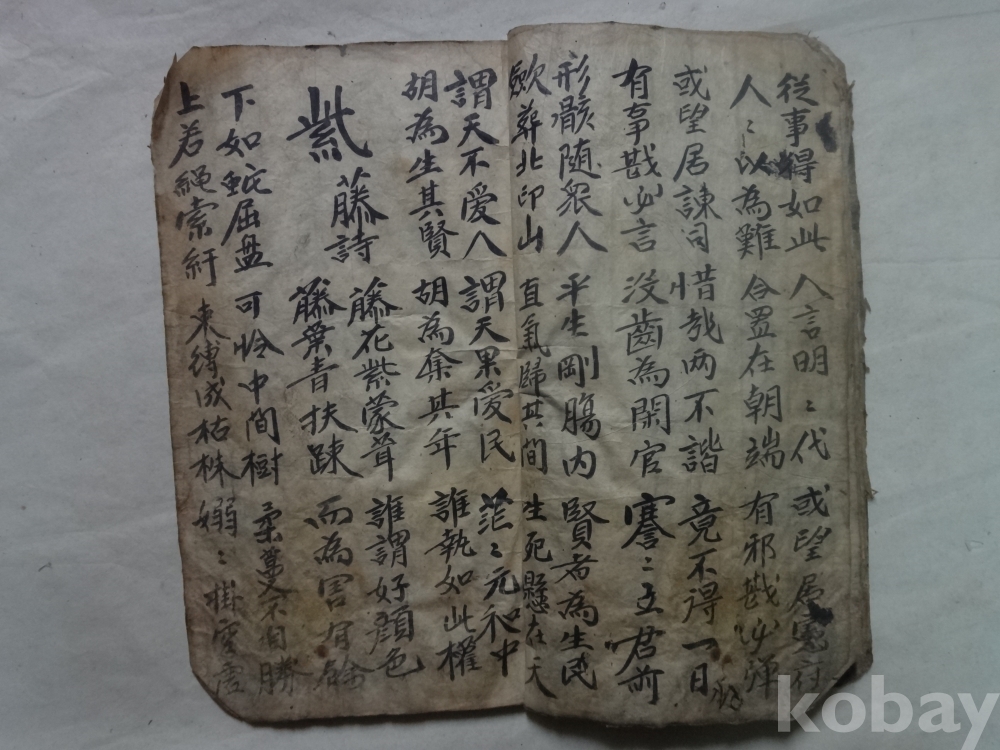 從事得如此 人言明〻代 或望居憲府
人〻以為難 合置在朝端 有邪戡必彈
或望居諫司 惜哉两不諧 竟不得一日
有事戡必言 沒齒為閑官 謇〻立君前
形骸随衆人 平生剛膓内 賢者為生民
歛葬北印山 直氣歸其間 生死懸在天
謂天不愛人 謂天果愛民 茫〻元和中
胡為生其賢 胡為奪其年 誰執如此權
紫藤詩
藤花紫蒙茸 誰謂好顏色
藤葉青扶踈 而為害有餘
下如蛇屈盤 可怜中間樹 柔蔓不自勝
上若繩索紆 束縛成枯株 嫋〻掛空虛
kobay